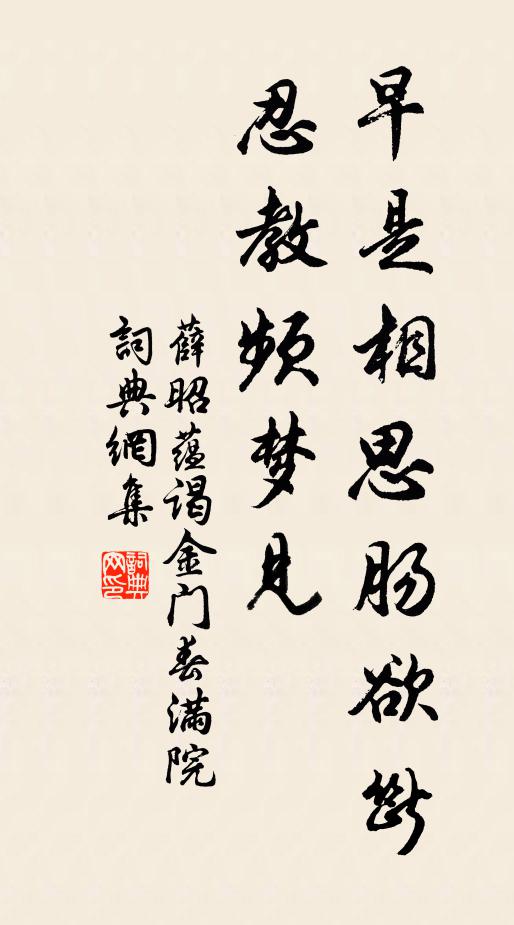 早是相思肠欲断
忍教频梦见
薛昭蕴谒金门春满院
詞典網集
詞典网印